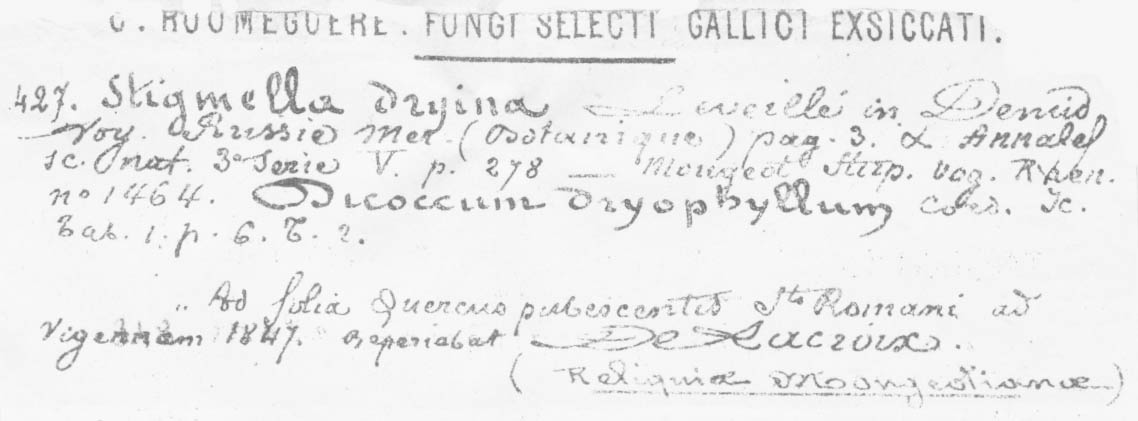 C. ROUMEGUERE. FUNGI SELECTI GALLICI EXSICCATI.
427. Stigmella dryina Leveillé in Demid
Voy. Russie Mer. (Botanique) pag. 3. & Annales
Sc. nat. 3e Serie V. p. 278 — Mougeot Stirp. Vog. Rhen.
no 1464. Dicoccum dryophyllum Cord. Ic.
Tab. 1. p. 6. T. 2.
„ Ad folia Quercus pubescentis Sti Romani ad
Vigennam 1847. Reperiebat De Lacroix.
(Reliquiæ Mougeotianæ)